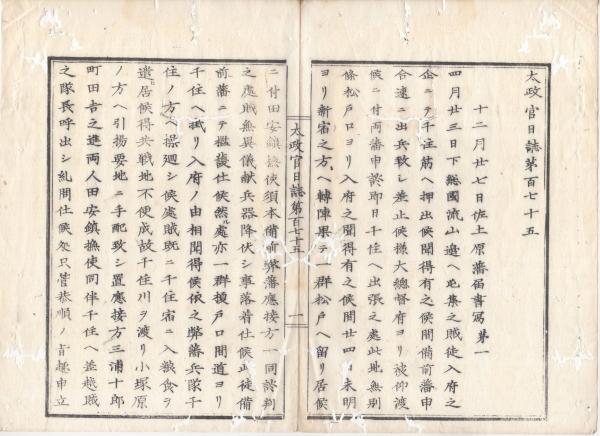 太政官日誌第百七十五
十二月廿七日佐土原藩届書寫 第一
四月廿三日下總國流山邉ヘ屯集之賊徒入府之
企ニテ千住筋ヘ押出候聞得有之候間備前藩申
合速ニ出兵致シ差止候様大總督府ヨリ被仰渡
候ニ付両藩申談即日千住ヘ出張之處此地無別
條松戸口ヨリ入府之聞得有之候間廿四日未明
ヨリ新宿之方ヘ轉陣果テ一群松戸ヘ留リ居候
太政官日誌第百七十五 一
ニ付田安鎮撫使須本備前弊藩應接方一同談判
之處賊無異儀献兵器降伏シ事落着仕候此徒備
前藩ニテ
千住ヘ抵リ入府ノ由相聞得候依之弊藩兵隊千
住ノ方ヘ操廻シ候處賊既ニ千住宿ニ入粮食ヲ
遣居候得共戦地不便成故千住川ヲ渡リ小塚原
ノ方ヘ引揚要地ニ手配致シ置應接方三浦十郎
町田吉之進両人田安鎮撫使同伴千住ヘ差越賊
之隊長呼出シ糺問仕候処只管恭順ノ旨趣申立